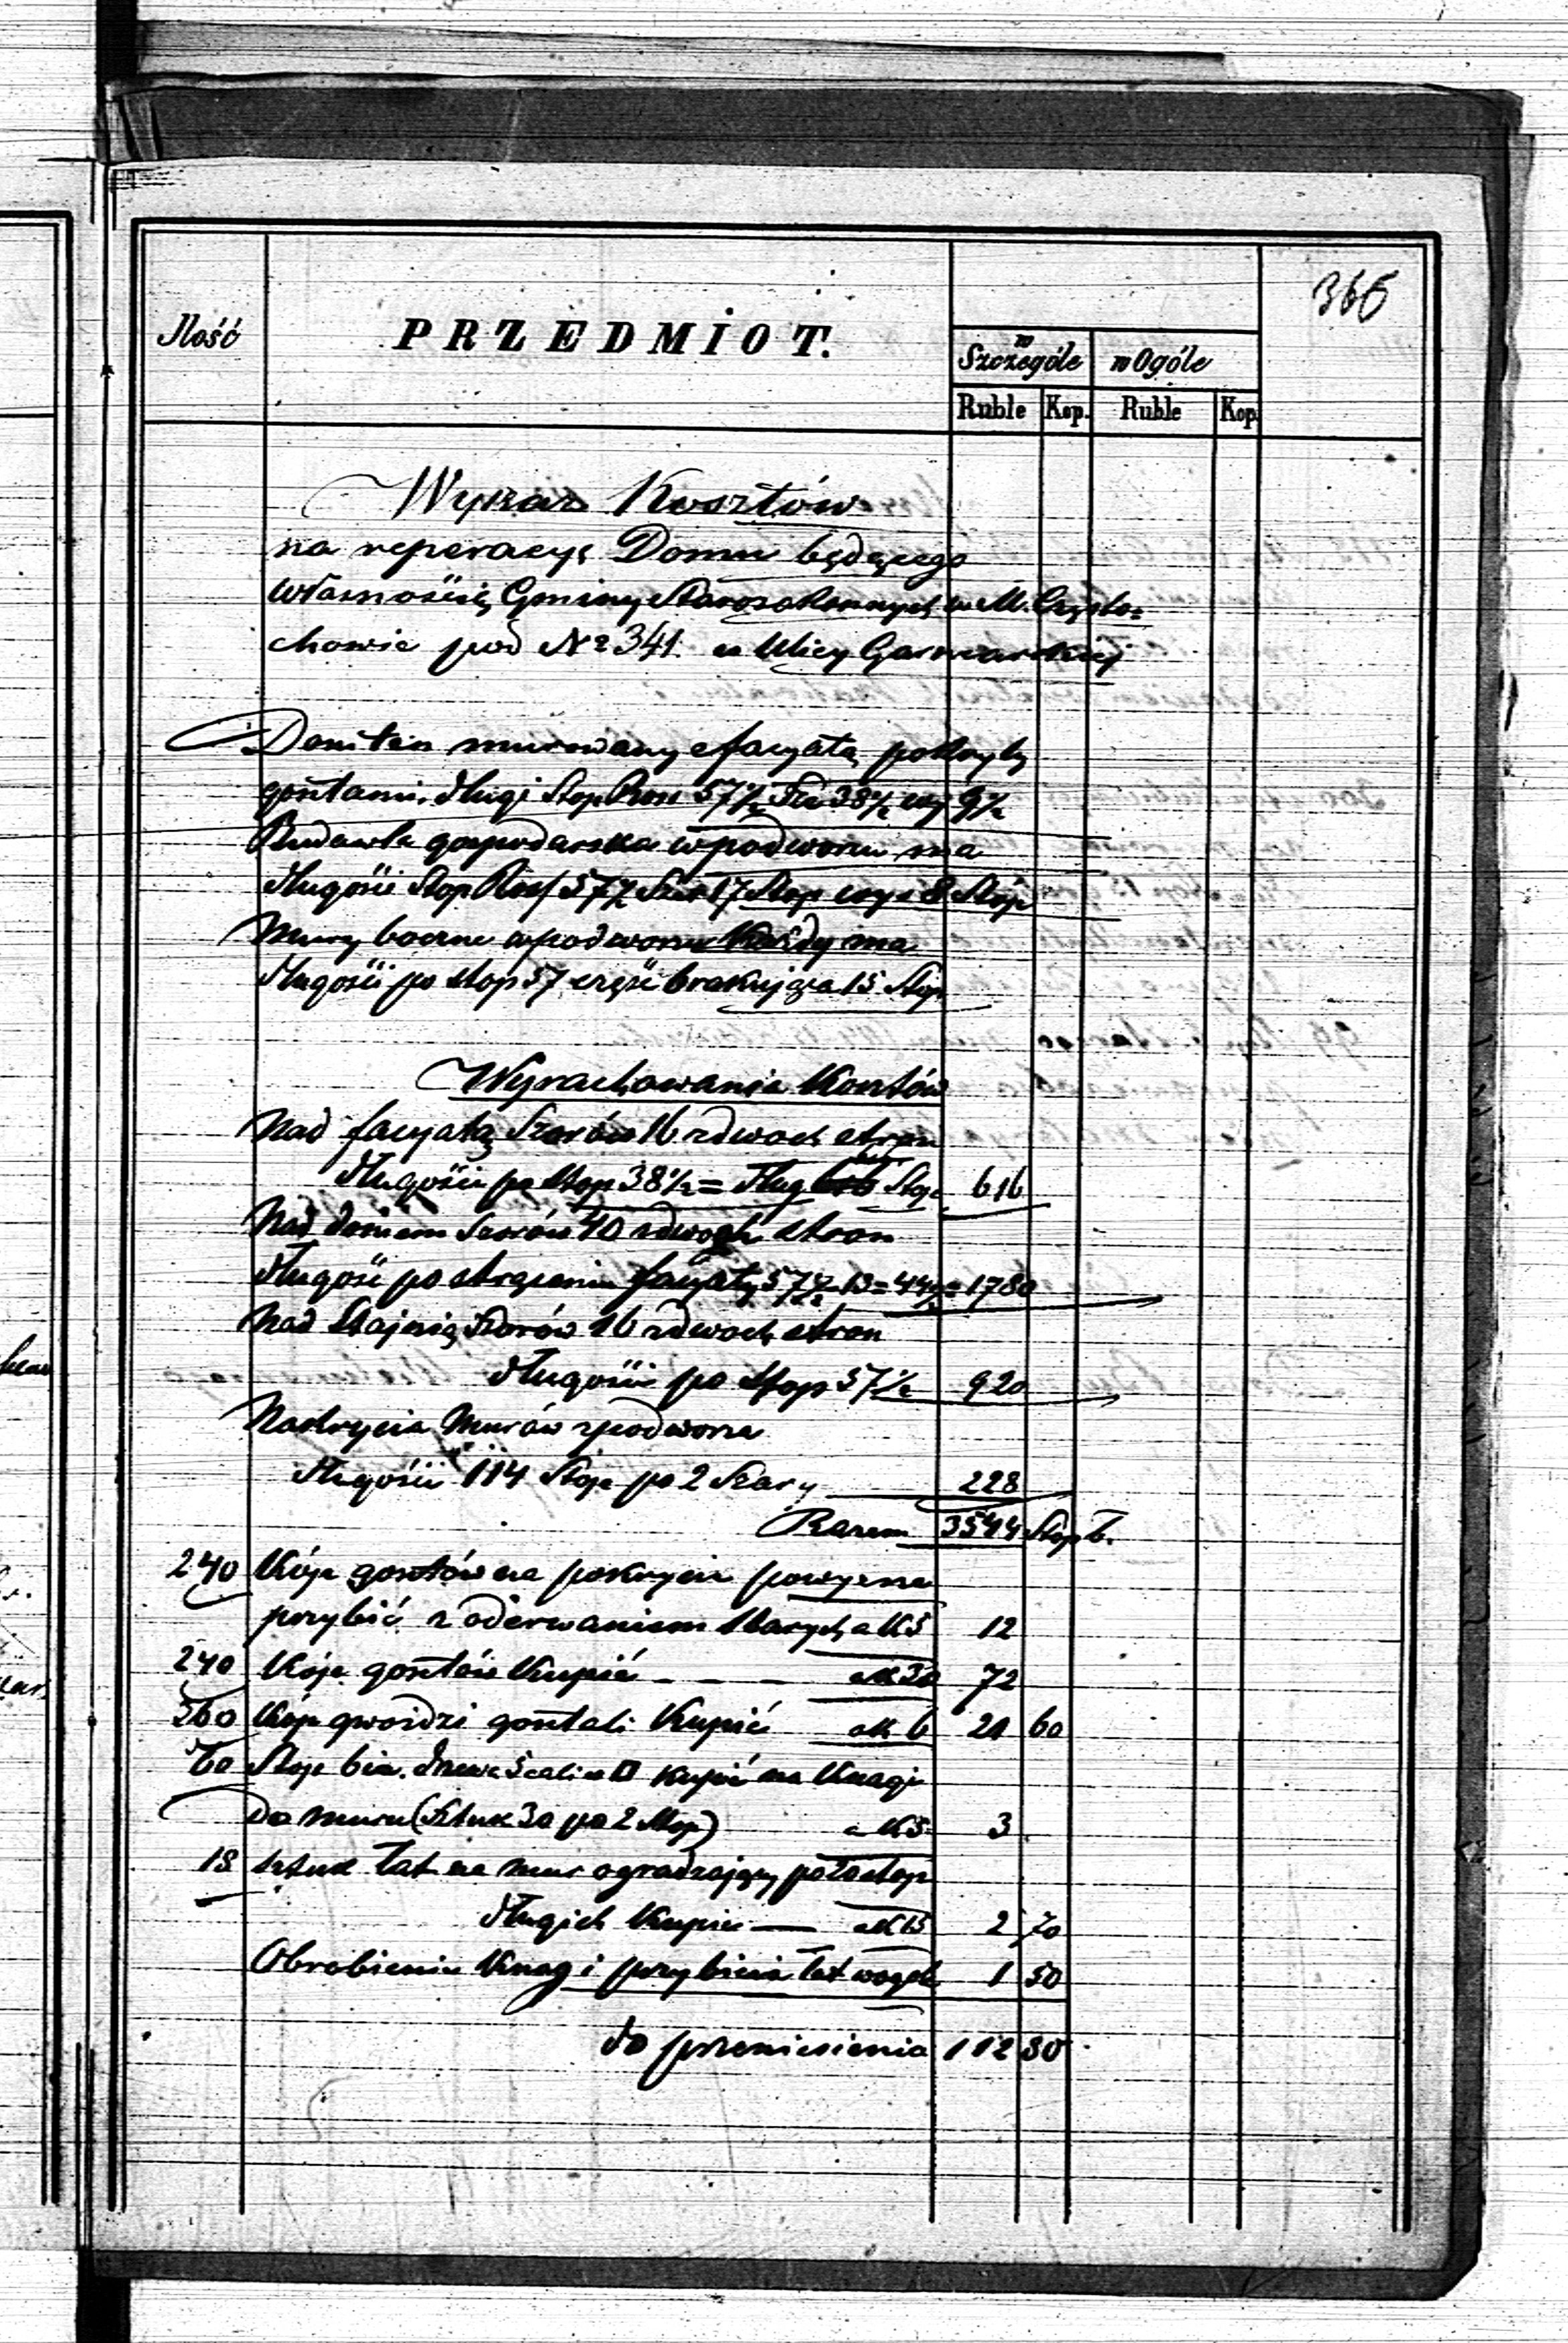 366
Ilość PRZEDMIOT. w Szczególe w Ogóle
Ruble Kop. Ruble Kop
Wykaz Kosztów
na reperacyę Domu będącego
własnością Gminy Starozakonnych w M. Czysto=
chowie pod № 341 w Ulicy Garncarskiej
Dom ten murowany z facyatą pokryty
gontami, długi Stop Ross 57 1/2 Sze 38 1/2 wy 9 1/2
Budowla gospodarska w podworzu ma
długości Stop Ross 57 1/2 Szer 17 Stop wys 8 Stop
Mury boczne w podworzu Każdy ma
długości po stop 57 część brakująca 15 Stop
Wyrachowanie Kosztów
Nad facyatą Szarów 16 z dwoch stron
długości po stop 38 1/2 = dług Stop 616
Nad domem Szarów 40 z dwoch stron
długość po strąceniu facyaty 57 1/2 - 13 = 44 1/2 = 1780
Nad Stajnią Szarów 16 z dwoch stron
długości po stop 57 1/2 920
Nakrycia Murów z podworza
długości 114 Stop po 2 Szary 228
Razem 3544 Stop b.
240 Kóp gontów na pokrycie powyzsze
przybić z oderwaniem starych a K 5 12
240 Kóp gontów Kupić - - - a K 30 72
360 Kóp gwoździ gontali Kupić a K 6 21 60
60 Stop bie. drzewa 5 cali w □ kupić na Knagi
do muru (Sztuk 30 po 2 Stop) a K 5 3
18 sztuk łat na mur ogradzający po stop
długich Kupić — a K 15 2 70
Obrobienie Knag i przybicie łat wogóle 1 50
do przeniesienia 112 80